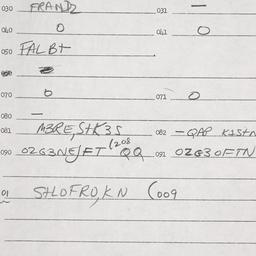 030 FRANDZ 031 —
040 0 041 0
050 FALBT
070 0 071 0
080 —
081 A3RE, STK3S 082 — QAP K1STN
090 OZG3NEJFT (208 QQ 091 OZG3OFTN
01 STLOFRO, KN (009